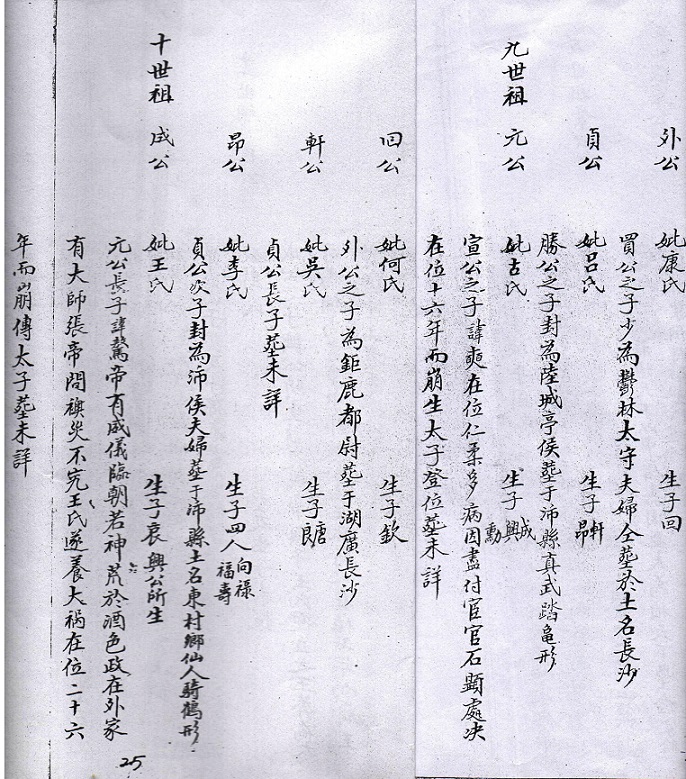 外公 妣康氏 生子回
買公之子少為鬱林太守夫婦仝塟於土名長沙
貞公 妣呂氏 生子軒昂
勝公之子封為陸城亭侯塟于沛縣真武踏龜形
九世祖 元公 妣古氏 生子成興勳
宣公之子諱奭在位仁柔多病因盡付宦官石顯處决
在位十六年而崩生太子登位塟未詳
回公 妣何氏 生子欽
外公之子為鉅鹿都尉塟于湖廣長沙
軒公 妣吳氏 生子
貞公長子塟未詳
昂公 妣李氏 生子四人向祿福壽
貞公次子封為沛侯夫婦塟于沛縣土名東村鄉仙人騎鶴形
十世祖 成公 妣王氏 生子哀 興公所生
元公長子諱驁帝有威儀臨朝若神荒於酒色政在外家
有大師張帝問 災不究王氏遂養大禍在位二十六
年而崩傳太子塟未詳
25